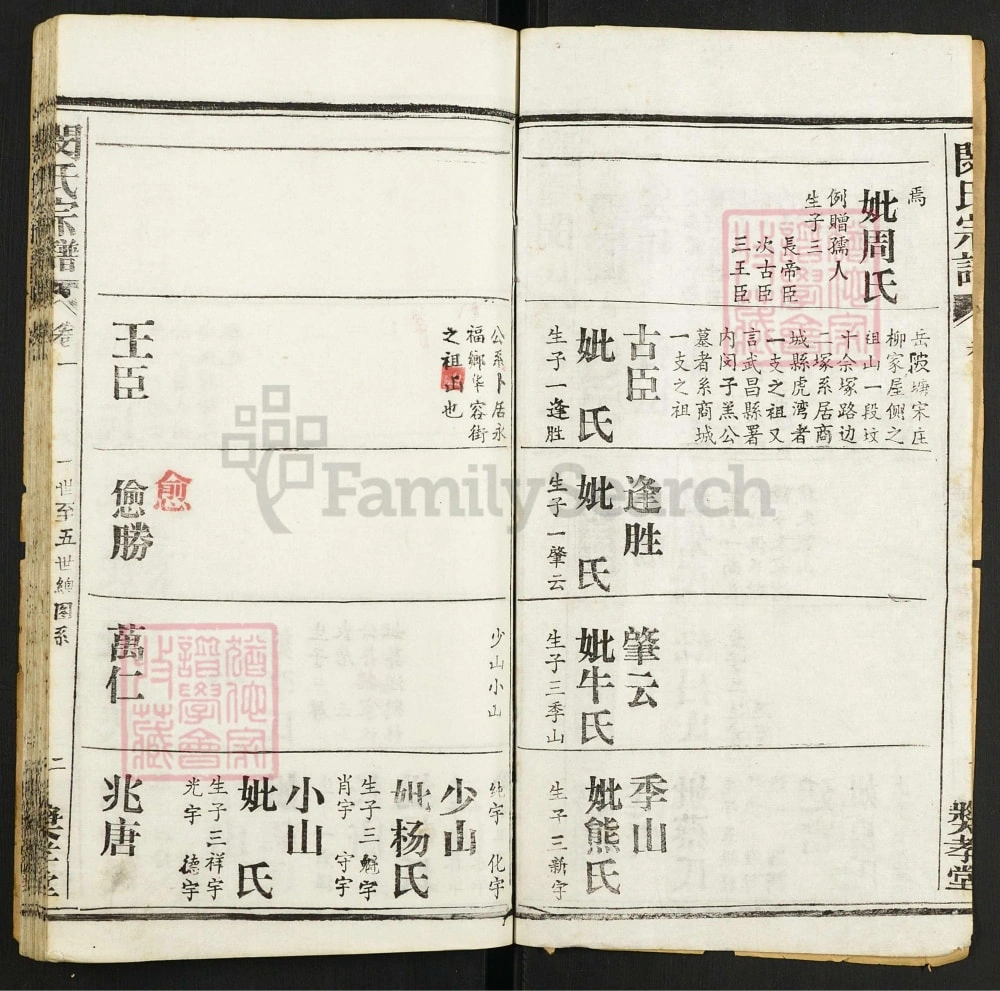 閔氏宗譜
焉
妣周氏
例贈孺人
生子三
長帝臣
次古臣
三王臣
岳陂塘宋庄
柳家屋侧之
祖山一段坟
十余塚路边
二塚系居商
城縣虎湾者
一支之祖又
言武昌縣署
内闵子羔公
墓者系商城
一支之祖
古臣
妣 氏
生子一逢胜
逢胜
妣 氏
生子一肇云
肇云
妣牛氏
生子三季山
季山
妣熊氏
生子三新宇
奬孝堂
公系卜居永
福鄉华容街
之祖止也
王臣
愈
偷勝
少山小山
萬仁
纯宇 化宇
少山
妣杨氏
生子三魁宇
肖宇 守宇
小山
妣 氏
生子三祥宇
光宇 德宇
兆唐
閔氏宗譜
卷一
一世至五世總图系
二
奬孝堂
FamilySearch